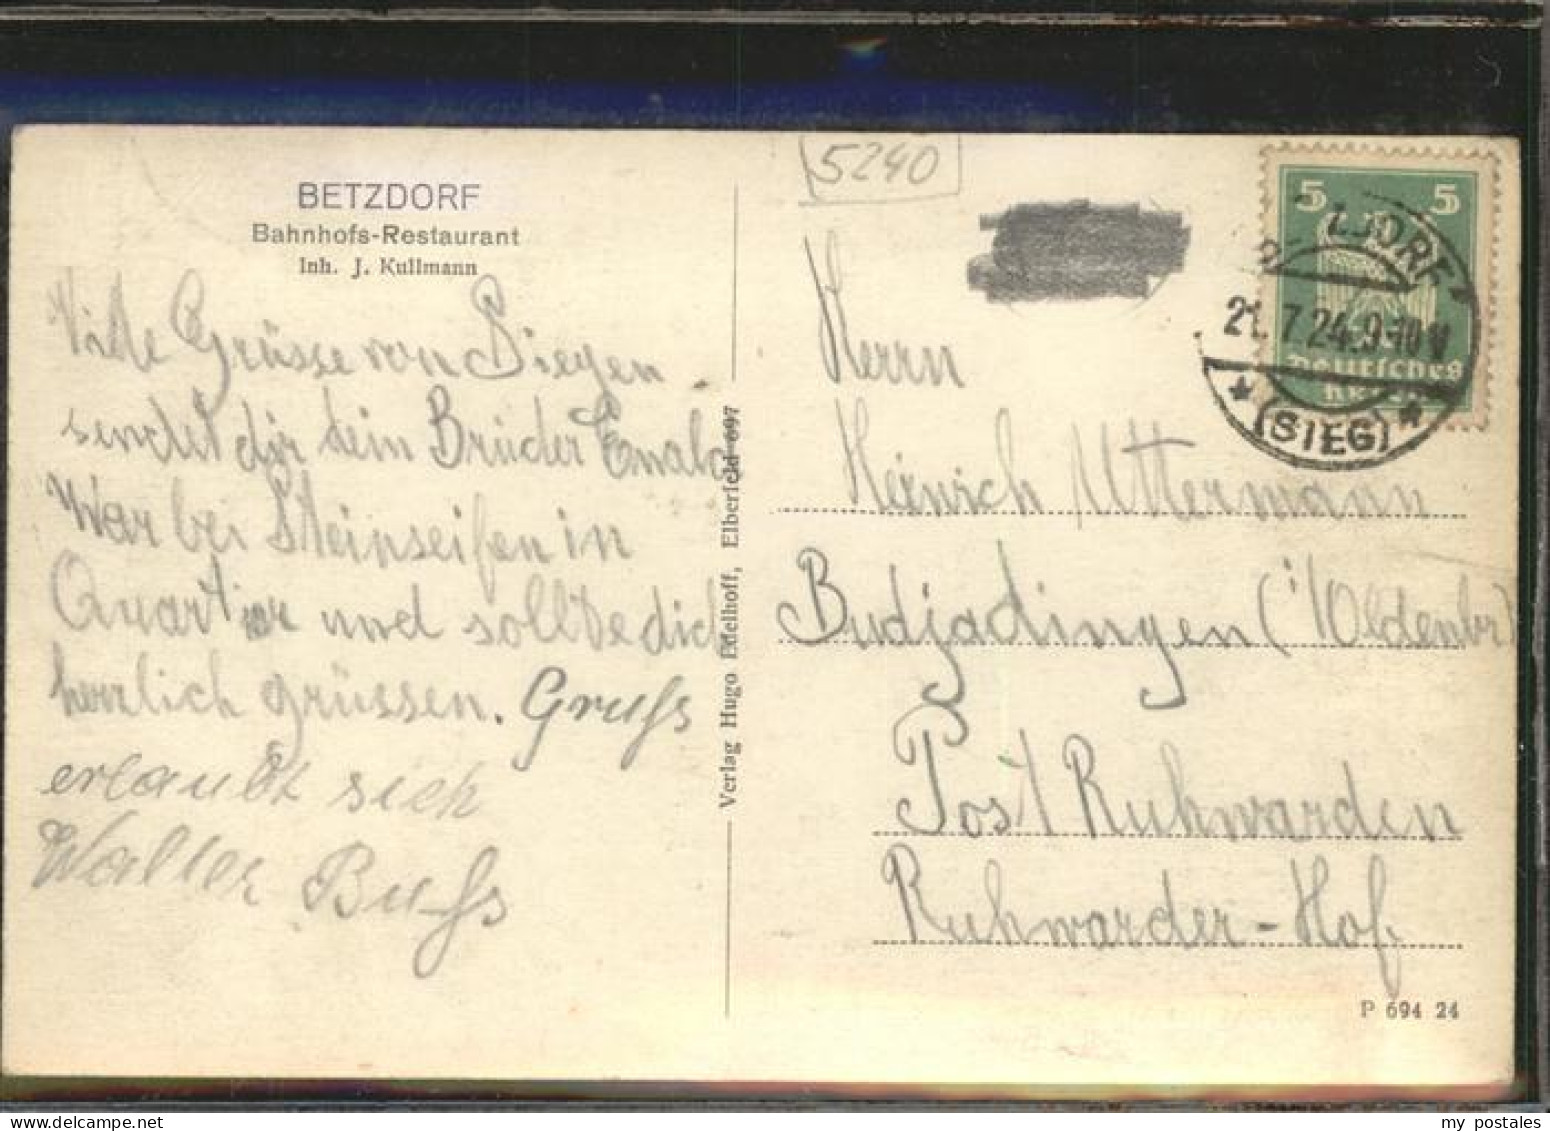 BETZDORF
Bahnhofs-Restaurant
Inh. J. Kullmann
Viele Grüsse von Siegen
sendet dir dein Bruder Ewald
War bei Steinseifen in
Quartier und sollte dich
herzlich grüssen. Gruß
erlaubt sich
Walter Buß
Verlag Hugo Edelhoff, Elberfeld 697
5240
5 5
ZDORF
21.7.24.9-10V
(SIEG)
Deutsches
Reich
Herrn
Heinrich Uttermann
Budjadingen (i/Oldenbr)
Post Ruhwarden
Ruhwarder-Hof
P 694 24
my postales